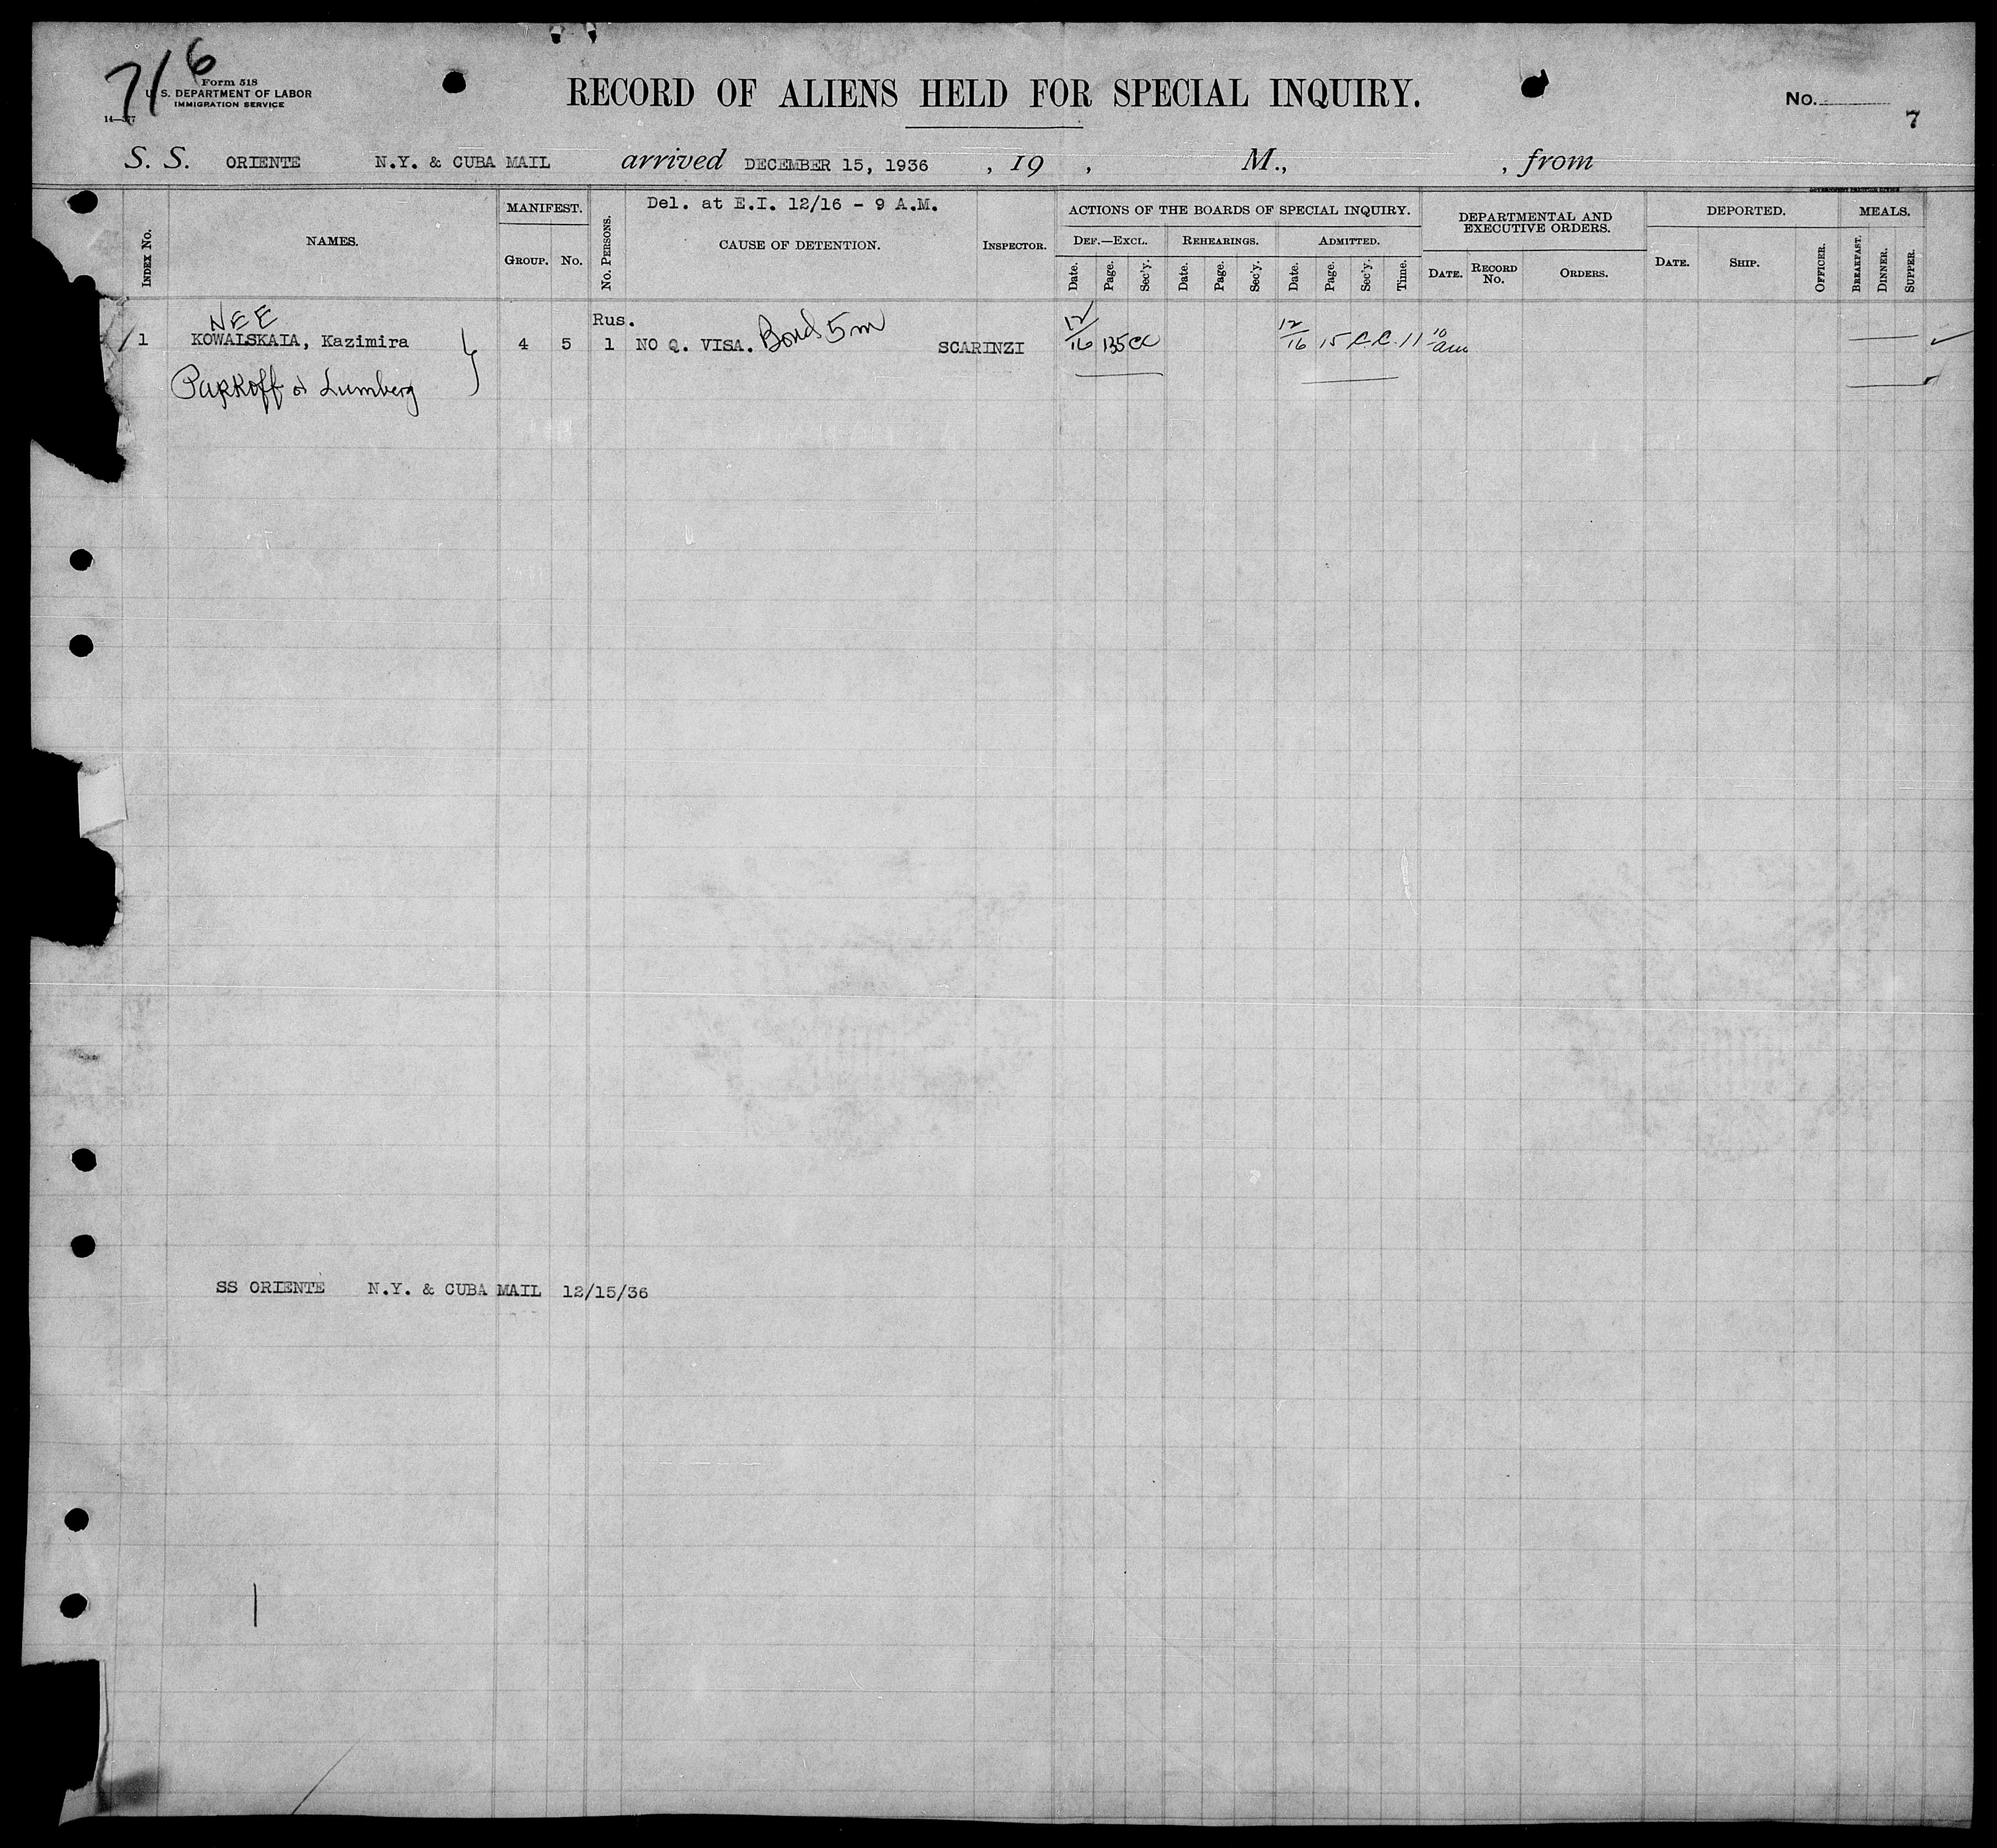 716
Form 518
U. S. DEPARTMENT OF LABOR
IMMIGRATION SERVICE
RECORD OF ALIENS HELD FOR SPECIAL INQUIRY.
No.
7
S. S. ORIENTE N.Y. & CUBA MAIL arrived DECEMBER 15, 1936 , 19 , M., , from
Del. at E.I. 12/16 - 9 A.M.
INDEX No. NAMES. MANIFEST. GROUP. No. No. PERSONS. CAUSE OF DETENTION. INSPECTOR.
ACTIONS OF THE BOARDS OF SPECIAL INQUIRY.
DEF.—EXCL. Date. Page. Sec'y. REHEARINGS. Date. Page. Sec'y. ADMITTED. Date. Page. Sec'y. Time.
DEPARTMENTAL AND EXECUTIVE ORDERS. DATE. RECORD No. ORDERS.
DEPORTED. DATE. SHIP. OFFICER.
MEALS. BREAKFAST. DINNER. SUPPER.
NEE
Rus.
1 KOWALSKAIA, Kazimira 4 5 1 NO Q. VISA. Bond 5m SCARINZI 12/16 135 CC 12/16 15 C.C. 11 10 am
Parkoff or Lumberg
SS ORIENTE N.Y. & CUBA MAIL 12/15/36